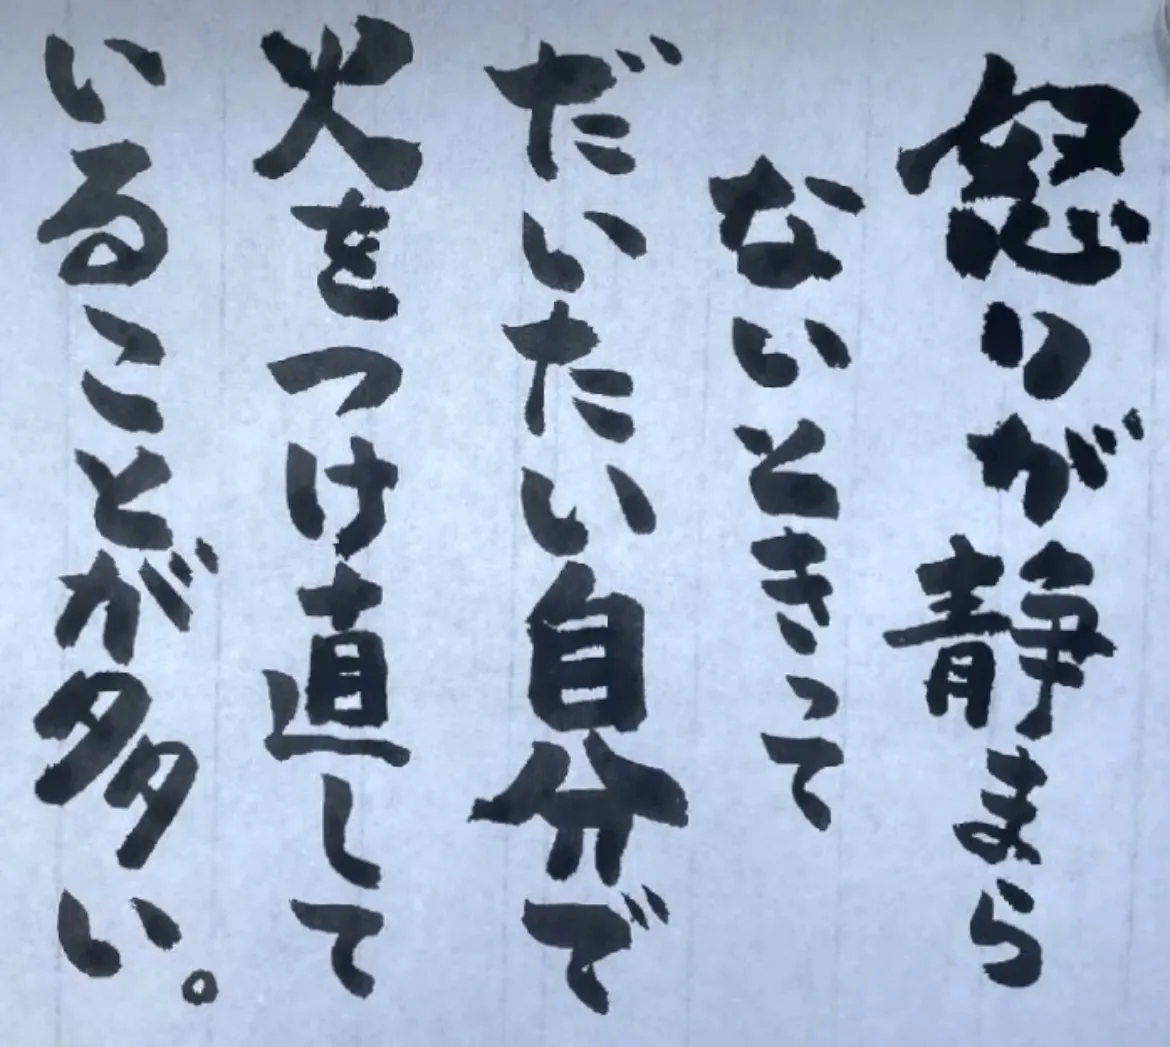 怒りが静まら
ないときって
だいたい自分で
火をつけ直して
いることが多い。